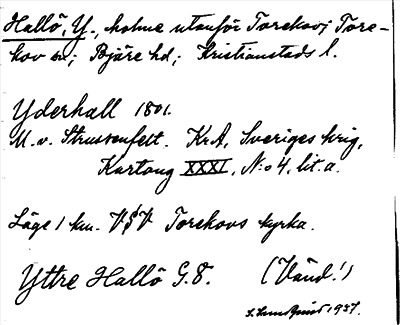 Hallö, Y., holme utanför Torekov; Tore-
kov sn; Bjäre hd; Kristianstads l.
Yderhall 1801.
M. v. Strussenfelt. KrA, Sveriges krig,
Kartong XXXI, N:o 4, lit. a.
Läge 1 km. VSV Torekovs kyrka.
Yttre Hallö G. 8. (Vänd!)
1937.